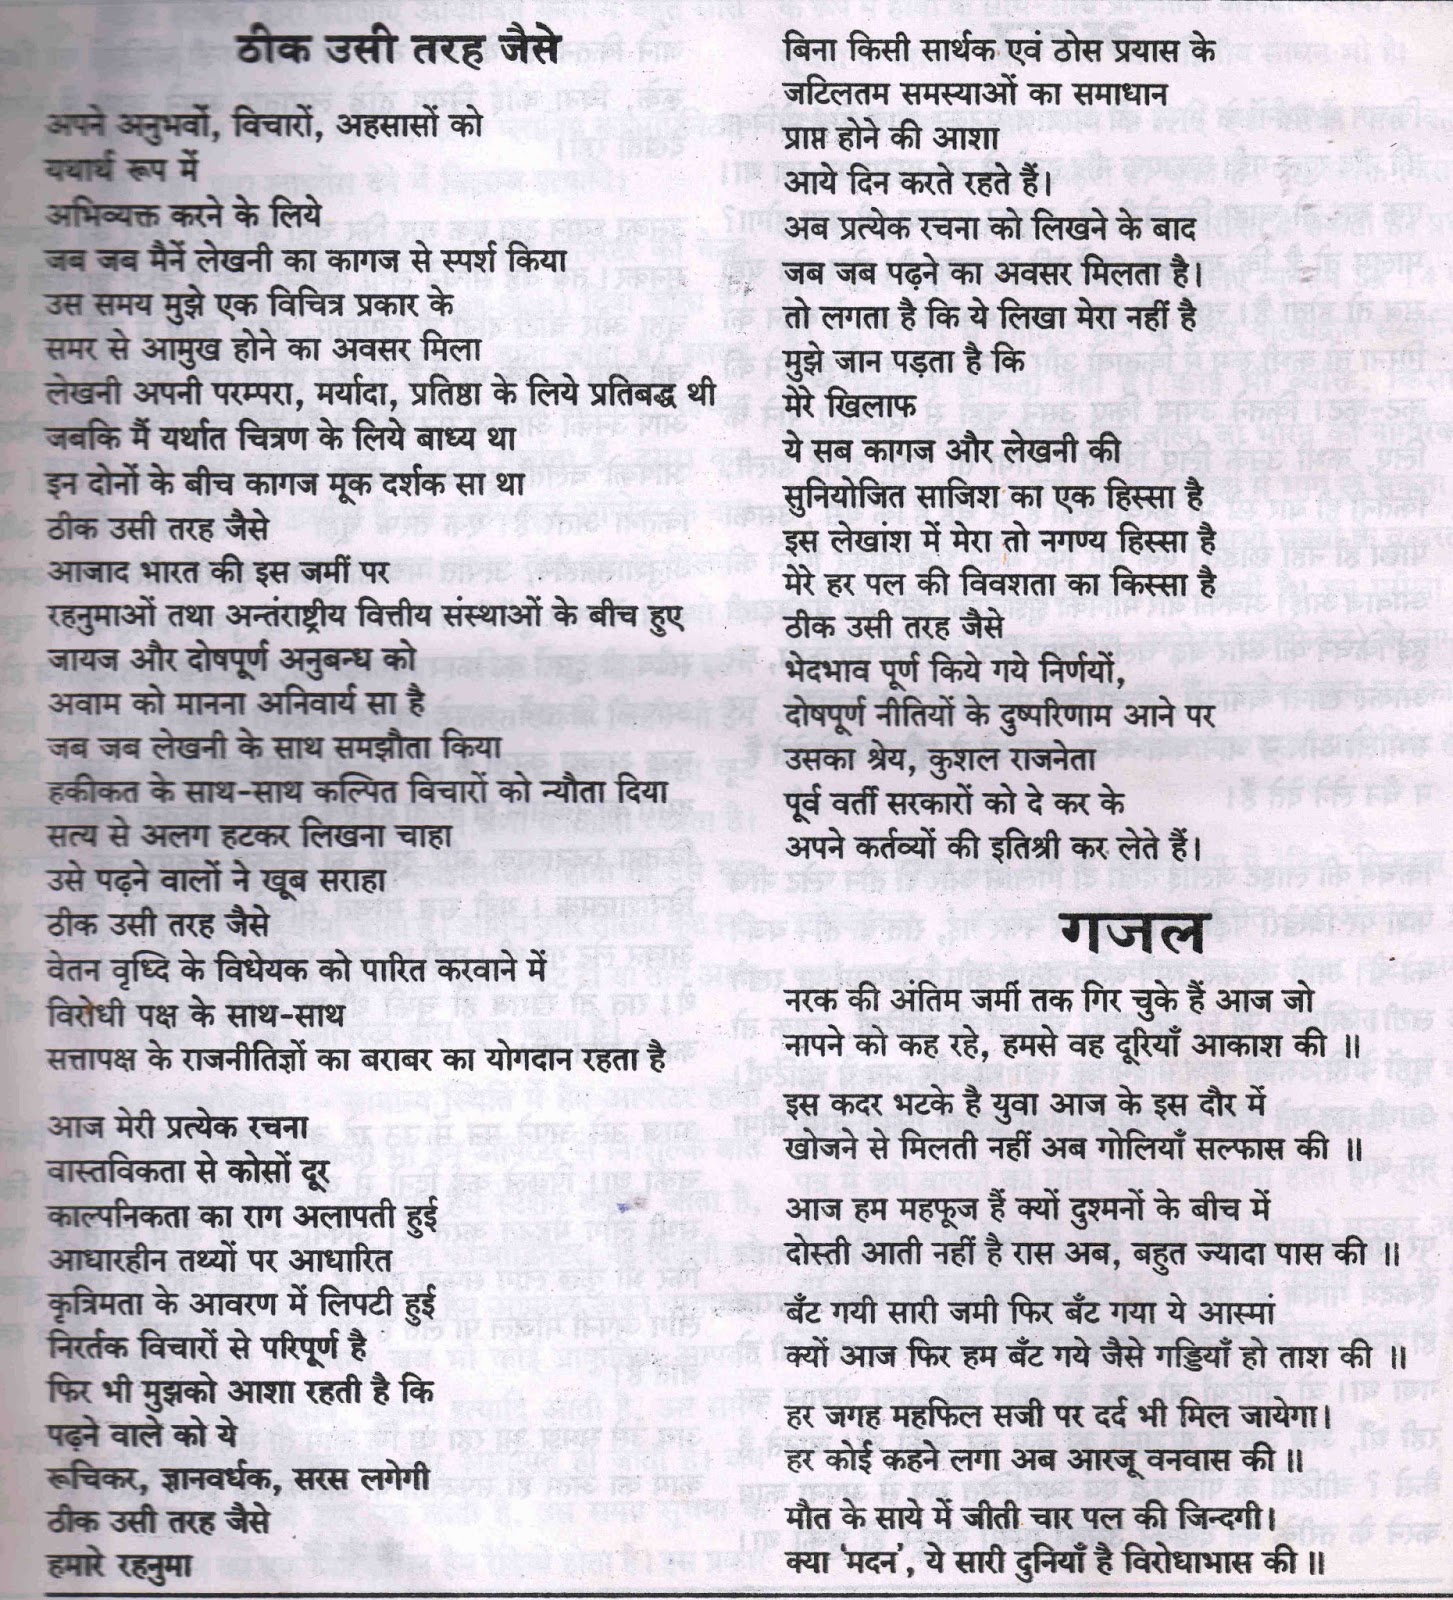 ठीक उसी तरह जैसे
अपने अनुभवों, विचारों, अहसासों को
यथार्थ रूप में
अभिव्यक्त करने के लिये
जब जब मैनें लेखनी का कागज से स्पर्श किया
उस समय मुझे एक विचित्र प्रकार के
समर से आमुख होने का अवसर मिला
लेखनी अपनी परम्परा, मर्यादा, प्रतिष्ठा के लिये प्रतिबद्ध थी
जबकि मैं यर्थात चित्रण के लिये बाध्य था
इन दोनों के बीच कागज मूक दर्शक सा था
ठीक उसी तरह जैसे
आजाद भारत की इस जमीं पर
रहनुमाओं तथा अन्तंराष्ट्रीय वित्तीय संस्थाओं के बीच हुए
जायज और दोषपूर्ण अनुबन्ध को
अवाम को मानना अनिवार्य सा है
जब जब लेखनी के साथ समझौता किया
हकीकत के साथ-साथ कल्पित विचारों को न्यौता दिया
सत्य से अलग हटकर लिखना चाहा
उसे पढ़ने वालों ने खूब सराहा
ठीक उसी तरह जैसे
वेतन वृध्दि के विधेयक को पारित करवाने में
विरोधी पक्ष के साथ-साथ
सत्तापक्ष के राजनीतिज्ञों का बराबर का योगदान रहता है
आज मेरी प्रत्येक रचना
वास्तविकता से कोसों दूर
काल्पनिकता का राग अलापती हुई
आधारहीन तथ्यों पर आधारित
कृत्रिमता के आवरण में लिपटी हुई
निरर्तक विचारों से परिपूर्ण है
फिर भी मुझको आशा रहती है कि
पढ़ने वाले को ये
रूचिकर, ज्ञानवर्धक, सरस लगेगी
ठीक उसी तरह जैसे
हमारे रहनुमा
बिना किसी सार्थक एवं ठोस प्रयास के
जटिलतम समस्याओं का समाधान
प्राप्त होने की आशा
आये दिन करते रहते हैं।
अब प्रत्येक रचना को लिखने के बाद
जब जब पढ़ने का अवसर मिलता है।
तो लगता है कि ये लिखा मेरा नहीं है
मुझे जान पड़ता है कि
मेरे खिलाफ
ये सब कागज और लेखनी की
सुनियोजित साजिश का एक हिस्सा है
इस लेखांश में मेरा तो नगण्य हिस्सा है
मेरे हर पल की विवशता का किस्सा है
ठीक उसी तरह जैसे
भेदभाव पूर्ण किये गये निर्णयों,
दोषपूर्ण नीतियों के दुष्परिणाम आने पर
उसका श्रेय, कुशल राजनेता
पूर्व वर्ती सरकारों को दे कर के
अपने कर्तव्यों की इतिश्री कर लेते हैं।
गजल
नरक की अंतिम जमीं तक गिर चुके हैं आज जो
नापने को कह रहे, हमसे वह दूरियाँ आकाश की ॥
इस कदर भटके है युवा आज के इस दौर में
खोजने से मिलती नहीं अब गोलियाँ सल्फास की ॥
आज हम महफूज हैं क्यों दुश्मनों के बीच में
दोस्ती आती नहीं है रास अब, बहुत ज्यादा पास की ॥
बँट गयी सारी जमी फिर बँट गया ये आस्मा
क्यों आज फिर हम बँट गये जैसे गड्डियाँ हो ताश की ॥
हर जगह महफिल सजी पर दर्द भी मिल जायेगा।
हर कोई कहने लगा अब आरजू वनवास की ॥
मौत के साये में जीती चार पल की जिन्दगी।
क्या 'मदन', ये सारी दुनियाँ है विरोधाभास की ॥